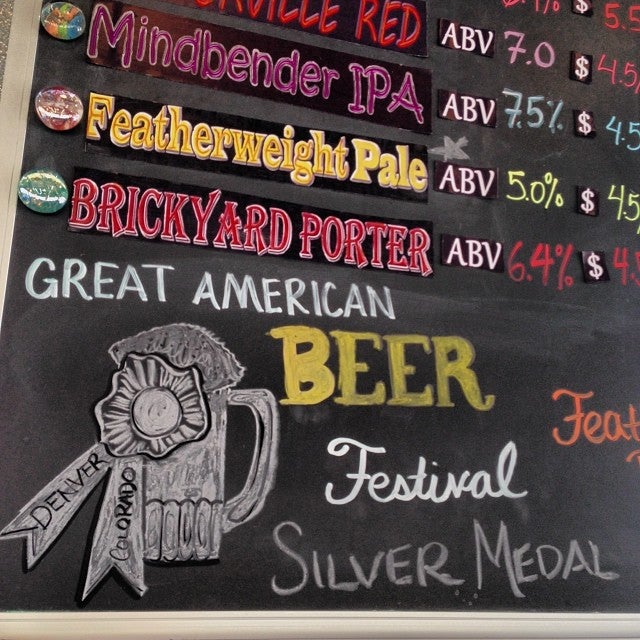 $ 5.5
RED ABV 7.0 $ 4.5
Mindbender IPA ABV 7.5% $ 4.5
Featherweight Pale ABV 5.0% $ 4.5
BRICKYARD PORTER ABV 6.4% $
GREAT AMERICAN
BEER
Festival
SILVER MEDAL
DENVER
COLORADO